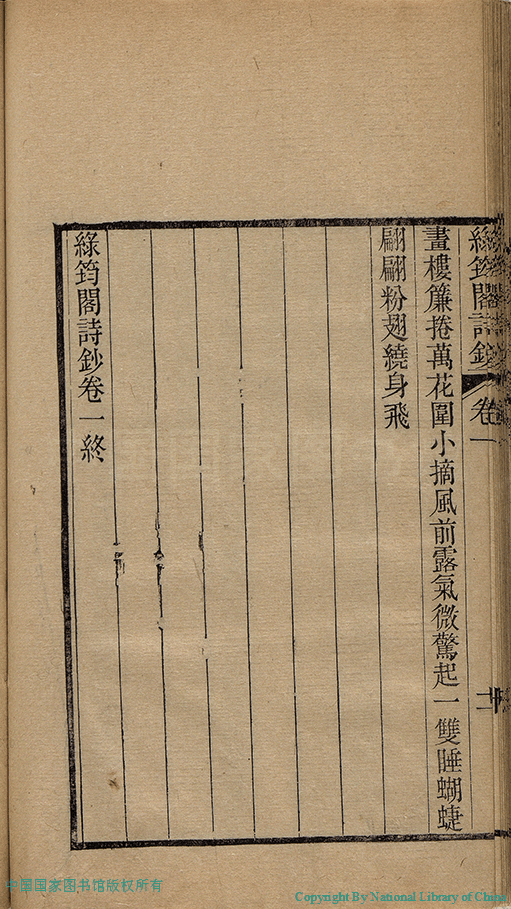 綠筠閣詩鈔 卷一
畫樓簾捲萬花圍小摘風前露氣微驚起一雙睡蝴蝶
翩翩粉翅繞身飛
綠筠閣詩鈔卷一終
中国国家图书馆版权所有
Copyright By National Library of China